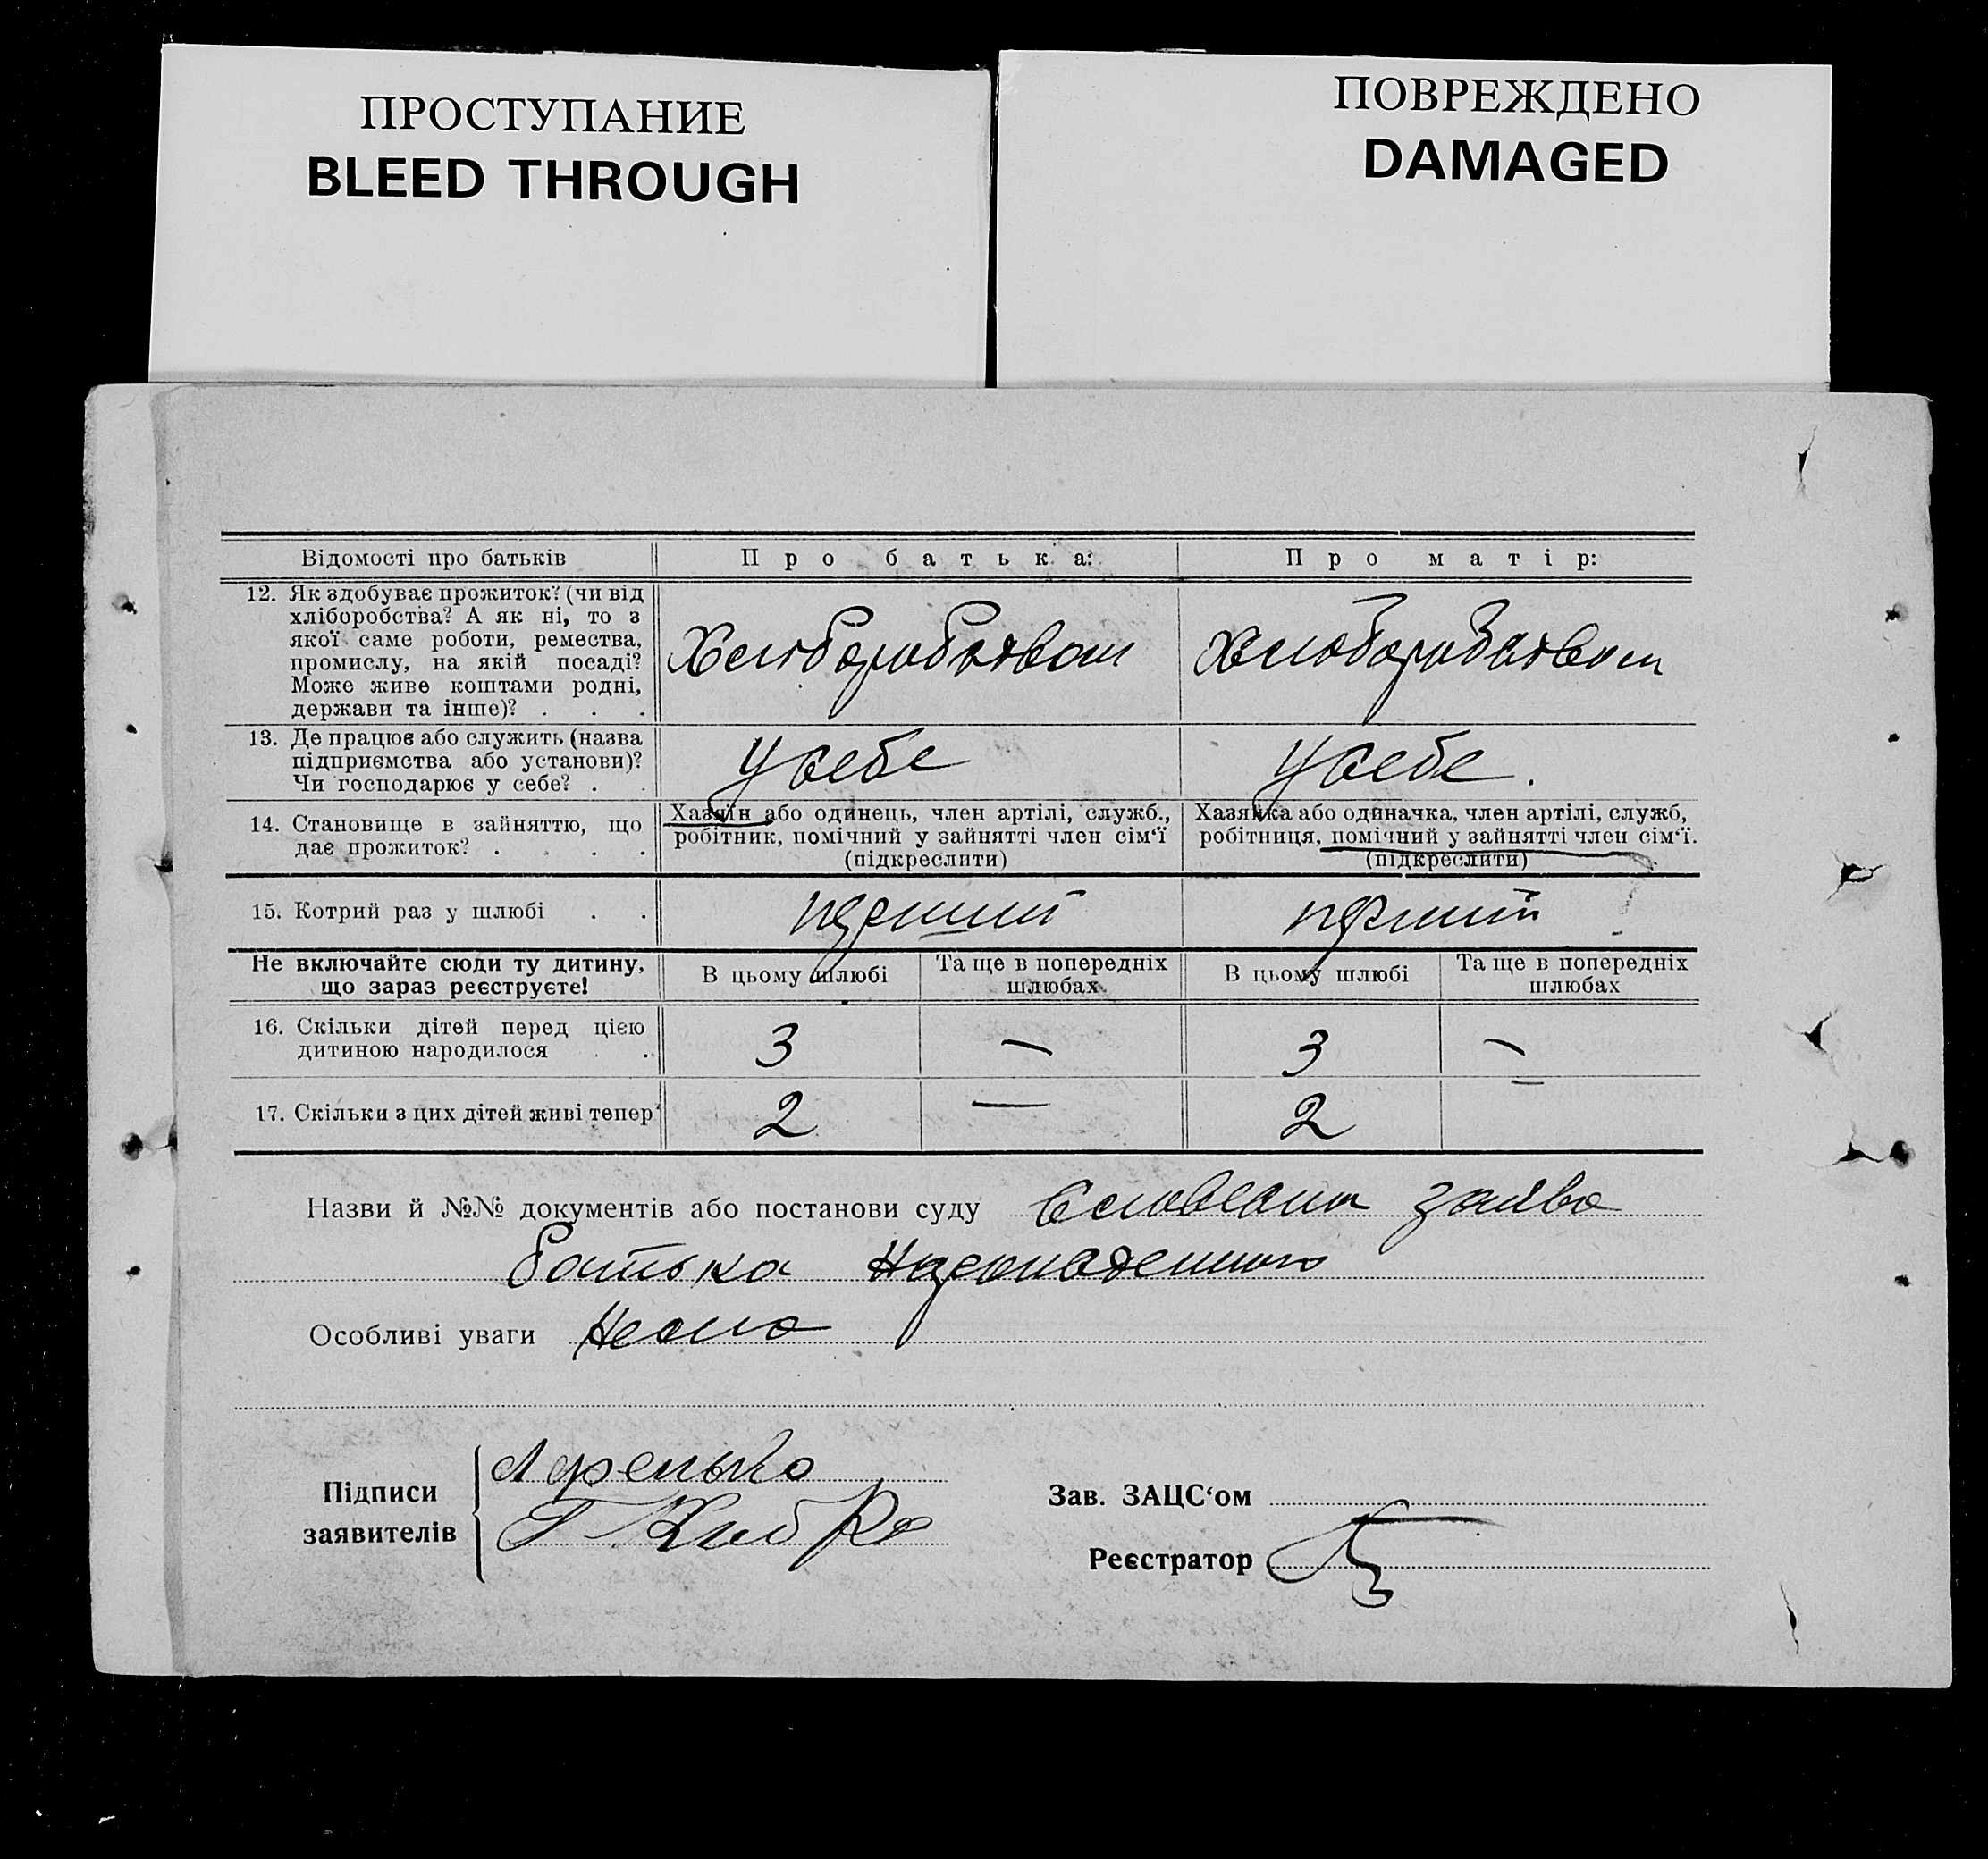 ПРОСТУПАНИЕ
BLEED THROUGH
ПОВРЕЖДЕНО
DAMAGED
Відомості про батьків
Про батька:
Про матір:
12. Як здобуває прожиток? (чи від
хліборобства? А як ні, то з
якої саме роботи, ремества,
промислу, на якій посаді?
Може живе коштами родні,
держави та інше)? . . .
Хліборобством
хліборобством
13. Де працює або служить (назва
підприємства або установи)?
Чи господарює у себе? . .
У себе
У себе.
14. Становище в зайняттю, що
дає прожиток? . . . .
Хазяїн або одинець, член артілі, служб.,
робітник, помічний у зайнятті член сім‘ї
(підкреслити)
Хазяйка або одиначка, член артілі, служб,
робітниця, помічний у зайнятті член сім‘ї.
(підкреслити)
15. Котрий раз у шлюбі . .
перший
перший
Не включайте сюди ту дитину,
що зараз реєструєте!
В цьому шлюбі
Та ще в попередніх
шлюбах
В цьому шлюбі
Та ще в попередніх
шлюбах
16. Скільки дітей перед цією
дитиною народилося . .
3
—
3
—
17. Скільки з цих дітей живі тепер
2
—
2
—
Назви й №№ документів або постанови суду Словесна заява
батька
Особливі уваги Нема
Підписи
заявителів
Зав. ЗАЦС‘ом
Реєстратор